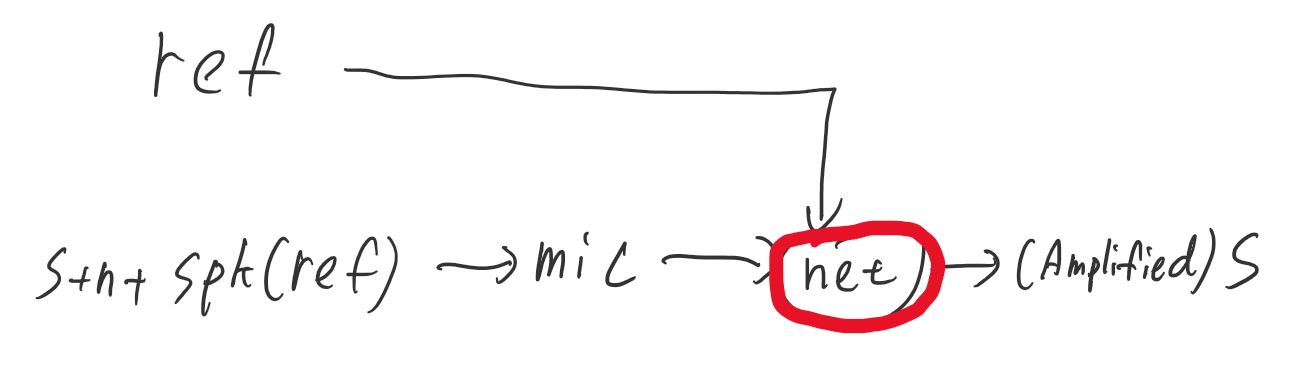 ref
s+n+ spk(ref) → mic → net → (Amplified) S